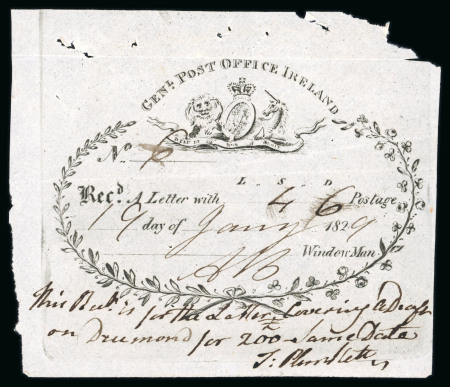 GENL. POST OFFICE IRELAND
No. 6
L. S. D.
Recd. A Letter with 4 6 Postage
19 day of Jany 1829
Window Man
This Rect. is for the Letter Covering a Draft
on Drumond for 200 Same Date
T: